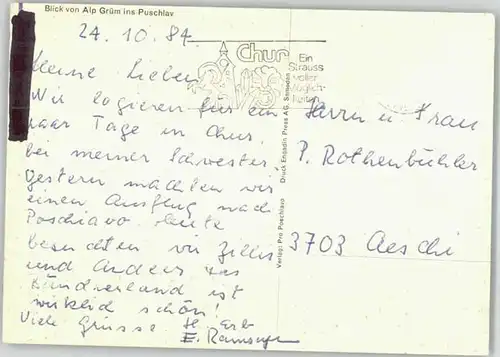 Blick von Alp Grüm ins Puschlav
24. 10. 84.
Meine Lieben
Wir logieren für ein
paar Tage in Chur,
bei meiner Schwester.
gestern machten wir
einen Ausflug nach
Poschiavo heute
besuchten wir Zillis
und Andeer das
Bündnerland ist
wirklich schön!
Viele Grüsse H. Erb
E. Ramseyer
Chur
Ein
Strauss
voller
Möglich-
keiten
Verlag: Pro Poschiavo
Druck Engadin Press AG, Samedan
Herrn u Frau
P. Rothenbühler
3703 Aeschi